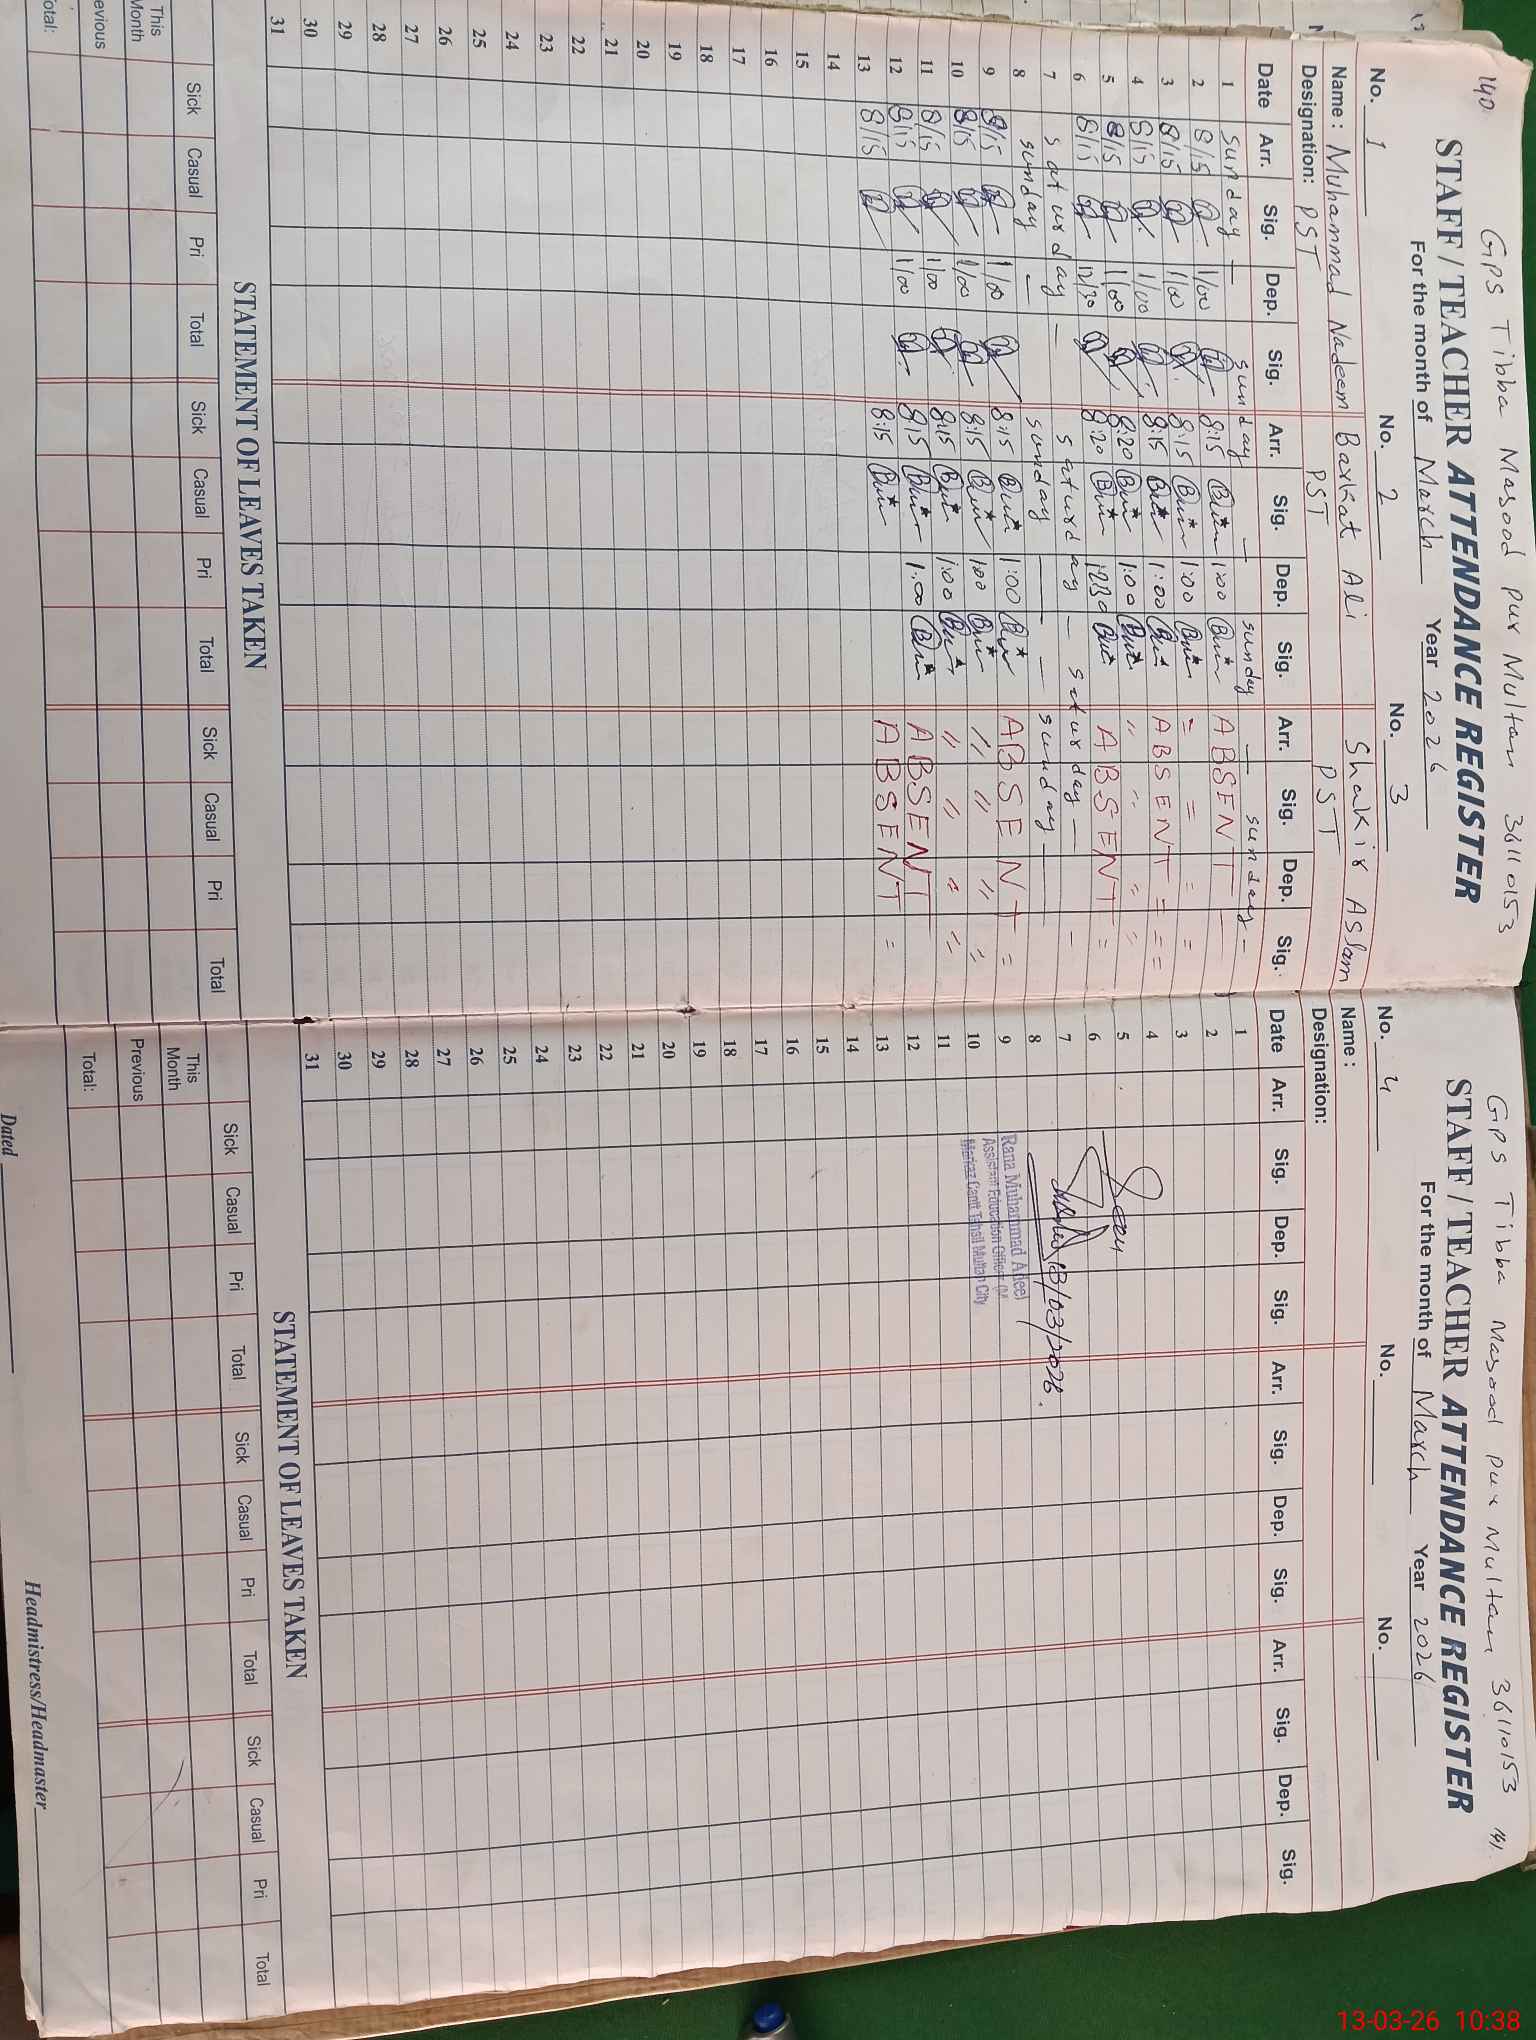 140
GPS Tibba Masood pur Multan 36110153
STAFF / TEACHER ATTENDANCE REGISTER
For the month of March Year 2026
No. 1 No. 2 No. 3
Name : Muhammad Nadeem Barkat Ali Shakir Aslam
Designation: PST PST PST
Date Arr. Sig. Dep. Sig. Arr. Sig. Dep. Sig. Arr. Sig. Dep. Sig.
1 Sunday - Sunday - Sunday - Sunday -
2 8/15 1/00 8:15 1:00 ABSENT
3 8/15 1/00 8:15 1:00 = = = =
4 8/15 1/00 8:15 1:00 ABSENT = =
5 8/15 1/00 8:20 1:00 " " " "
6 8/15 12/30 8:20 12:30 ABSENT =
7 Saturday - Saturday - Saturday - -
8 Sunday - Sunday - - - Sunday -
9 8/15 1/00 8:15 1:00 ABSENT =
10 8/15 1/00 8:15 1:00 " " " "
11 8/15 1/00 8:15 1:00 " " " "
12 8/15 1/00 8:15 1:00 ABSENT
13 8/15 8:15 ABSENT =
14
15
16
17
18
19
20
21
22
23
24
25
26
27
28
29
30
31
STATEMENT OF LEAVES TAKEN
Sick Casual Pri Total Sick Casual Pri Total Sick Casual Pri Total
This Month
evious
otal:
141
GPS Tibba Masood pur Multan 36110153
STAFF / TEACHER ATTENDANCE REGISTER
For the month of March Year 2026
No. 4 No. No.
Name :
Designation:
Date Arr. Sig. Dep. Sig. Arr. Sig. Dep. Sig. Arr. Sig. Dep. Sig.
1
2
3
4
5
6
7
8
9
10
11
12
13
14
15
16
17
18
19
20
21
22
23
24
25
26
27
28
29
30
31
Seen
13/03/2026.
Rana Muhammad Adeel
Assistant Education Officer (M
Markaz Cantt Tehsil Multan City
STATEMENT OF LEAVES TAKEN
Sick Casual Pri Total Sick Casual Pri Total Sick Casual Pri Total
This Month
Previous
Total:
Dated
Headmistress/Headmaster
13-03-26 10:38